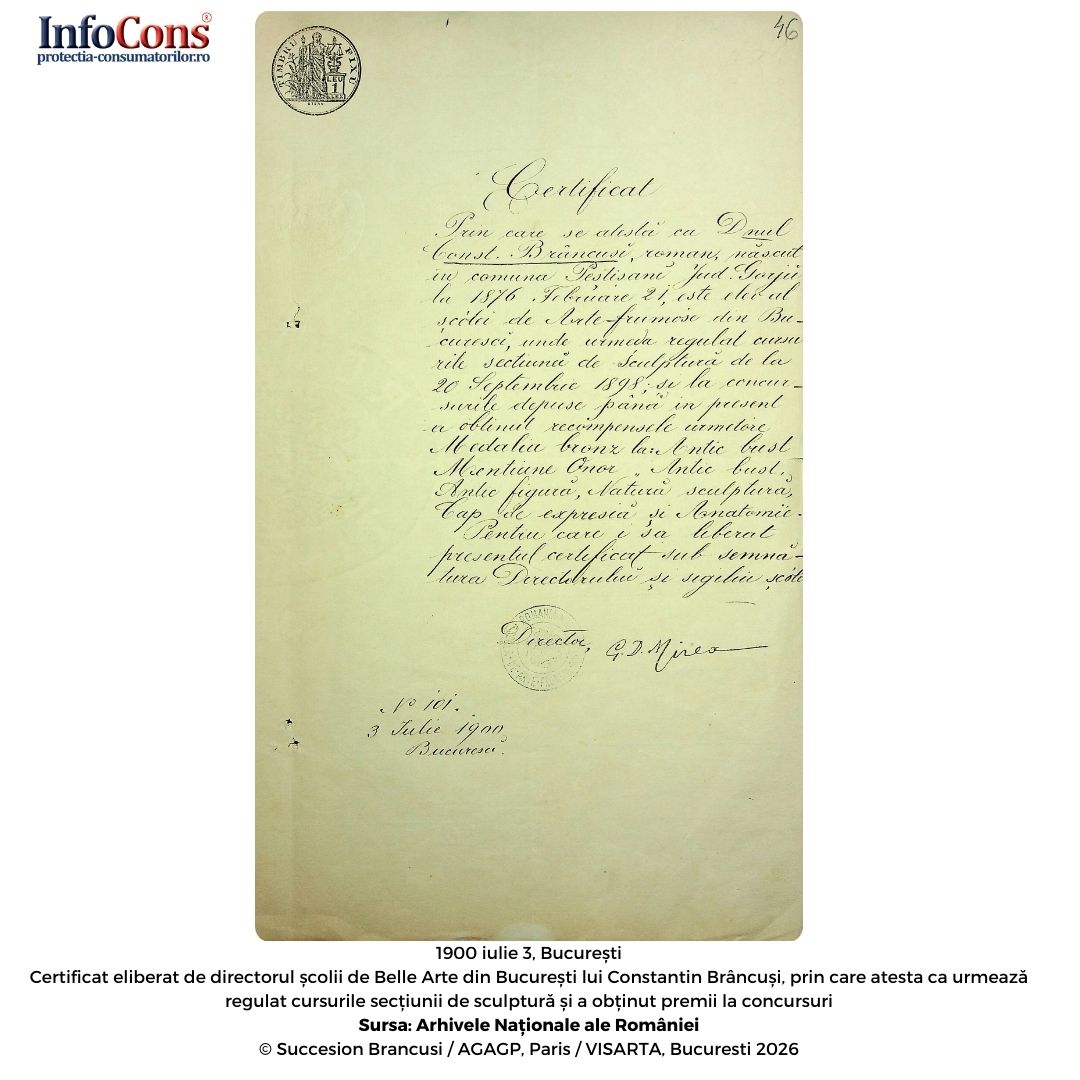 InfoCons®
protectia-consumatorilor.ro
TIMBRU FIXU
LEU
1
46
Certificat
Prin care se atestă ca Dnul
Const. Brâncuși, roman, născut
in comuna Pestisani Jud. Gorjŭ
la 1876 Februare 21, este elev al
scólei de Arte-frumose din Bu-
curesci, unde urmeda regulat cursu
rile sectiunei de Sculptură de la
20 Septembrie 1898; si la concur-
surile depuse până in present
a obtinut recompensele urmetore
Medalia bronz la: Antic bust
Mentiune Onor „ Antic bust,
Antic figură, Natură sculptură,
Cap de expresiă și Anatomie.
Pentru care i s'a liberat
presentul certificat sub semnă-
tura Directorului și sigiliu școlei
ROMANIA
Director, G. D. Mirea
No 101.
3 Iulie 1900
Bucuresci.
1900 iulie 3, București
Certificat eliberat de directorul școlii de Belle Arte din București lui Constantin Brâncuși, prin care atesta ca urmează
regulat cursurile secțiunii de sculptură și a obținut premii la concursuri
Sursa: Arhivele Naționale ale României
© Succesion Brancusi / AGAGP, Paris / VISARTA, Bucuresti 2026